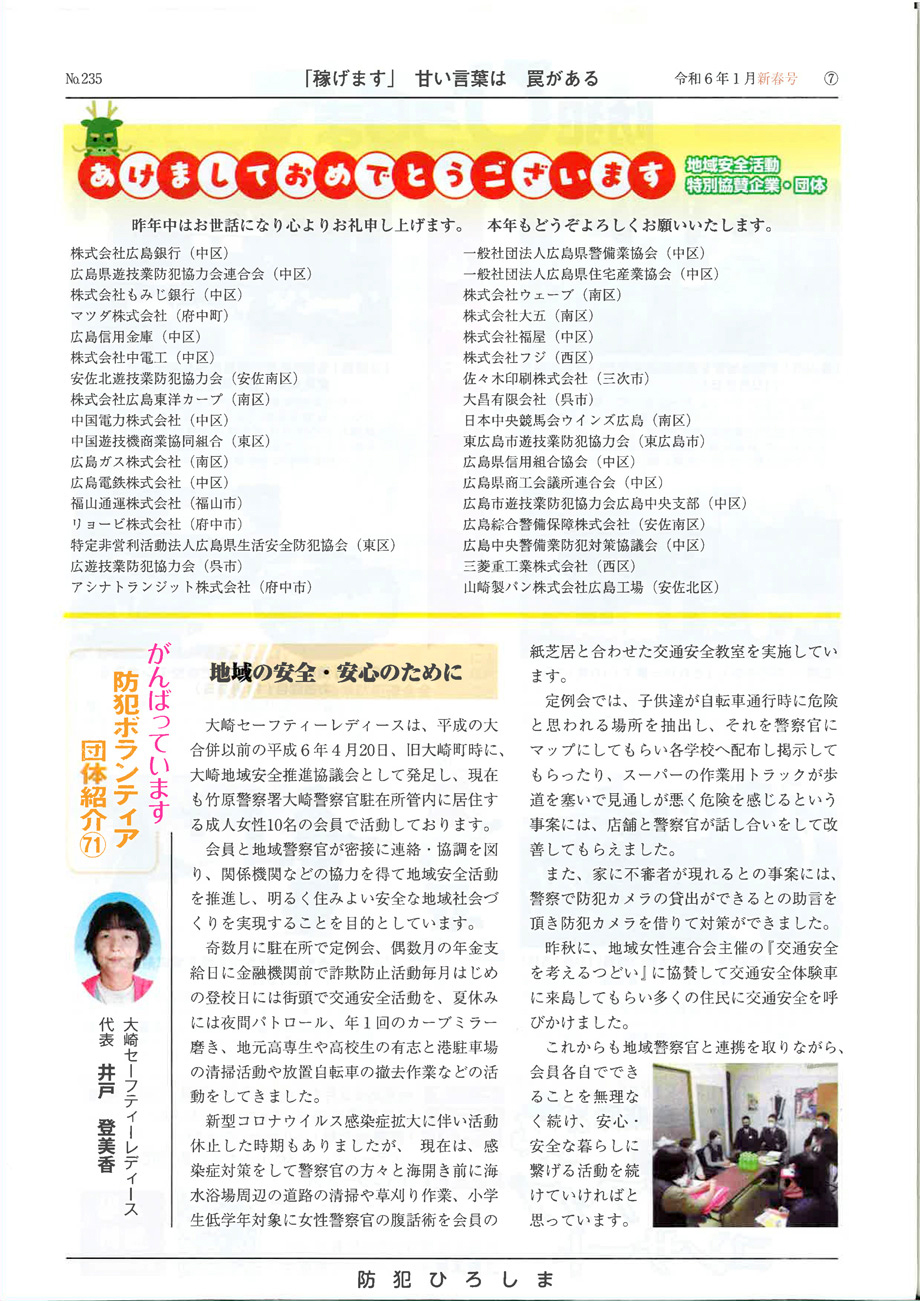 No.235
「稼げます」 甘い言葉は 罠がある
令和6年1月新春号 ⑦
あけましておめでとうございます
地域安全活動
特別協賛企業・団体
昨年中はお世話になり心よりお礼申し上げます。 本年もどうぞよろしくお願いいたします。
株式会社広島銀行（中区）
広島県遊技業防犯協力会連合会（中区）
株式会社もみじ銀行（中区）
マツダ株式会社（府中町）
広島信用金庫（中区）
株式会社中電工（中区）
安佐北遊技業防犯協力会（安佐南区）
株式会社広島東洋カープ（南区）
中国電力株式会社（中区）
中国遊技機商業協同組合（東区）
広島ガス株式会社（南区）
広島電鉄株式会社（中区）
福山通運株式会社（福山市）
リョービ株式会社（府中市）
特定非営利活動法人広島県生活安全防犯協会（東区）
広遊技業防犯協力会（呉市）
アシナトランジット株式会社（府中市）
一般社団法人広島県警備業協会（中区）
一般社団法人広島県住宅産業協会（中区）
株式会社ウェーブ（南区）
株式会社大五（南区）
株式会社福屋（中区）
株式会社フジ（西区）
佐々木印刷株式会社（三次市）
大昌有限会社（呉市）
日本中央競馬会ウインズ広島（南区）
東広島市遊技業防犯協力会（東広島市）
広島県信用組合協会（中区）
広島県商工会議所連合会（中区）
広島市遊技業防犯協力会広島中央支部（中区）
広島綜合警備保障株式会社（安佐南区）
広島中央警備業防犯対策協議会（中区）
三菱重工業株式会社（西区）
山崎製パン株式会社広島工場（安佐北区）
がんばっています
防犯ボランティア
団体紹介㉛
大崎セーフティーレディース
代表 井戸 登美香
地域の安全・安心のために
大崎セーフティーレディースは、平成の大
合併以前の平成6年4月20日、旧大崎町時に、
大崎地域安全推進協議会として発足し、現在
も竹原警察署大崎警察官駐在所管内に居住す
る成人女性10名の会員で活動しております。
会員と地域警察官が密接に連絡・協調を図
り、関係機関などの協力を得て地域安全活動
を推進し、明るく住みよい安全な地域社会づ
くりを実現することを目的としています。
奇数月に駐在所で定例会、偶数月の年金支
給日に金融機関前で詐欺防止活動毎月はじめ
の登校日には街頭で交通安全活動を、夏休み
には夜間パトロール、年1回のカーブミラー
磨き、地元高専生や高校生の有志と港駐車場
の清掃活動や放置自転車の撤去作業などの活
動をしてきました。
新型コロナウイルス感染症拡大に伴い活動
休止した時期もありましたが、 現在は、感
染症対策をして警察官の方々と海開き前に海
水浴場周辺の道路の清掃や草刈り作業、小学
生低学年対象に女性警察官の腹話術を会員の
紙芝居と合わせた交通安全教室を実施してい
ます。
定例会では、子供達が自転車通行時に危険
と思われる場所を抽出し、それを警察官に
マップにしてもらい各学校へ配布し掲示して
もらったり、スーパーの作業用トラックが歩
道を塞いで見通しが悪く危険を感じるという
事案には、店舗と警察官が話し合いをして改
善してもらえました。
また、家に不審者が現れるとの事案には、
警察で防犯カメラの貸出ができるとの助言を
頂き防犯カメラを借りて対策ができました。
昨秋に、地域女性連合会主催の『交通安全
を考えるつどい』に協賛して交通安全体験車
に来島してもらい多くの住民に交通安全を呼
びかけました。
これからも地域警察官と連携を取りながら、
会員各自ででき
ることを無理な
く続け、安心・
安全な暮らしに
繋げる活動を続
けていければと
思っています。
防犯ひろしま